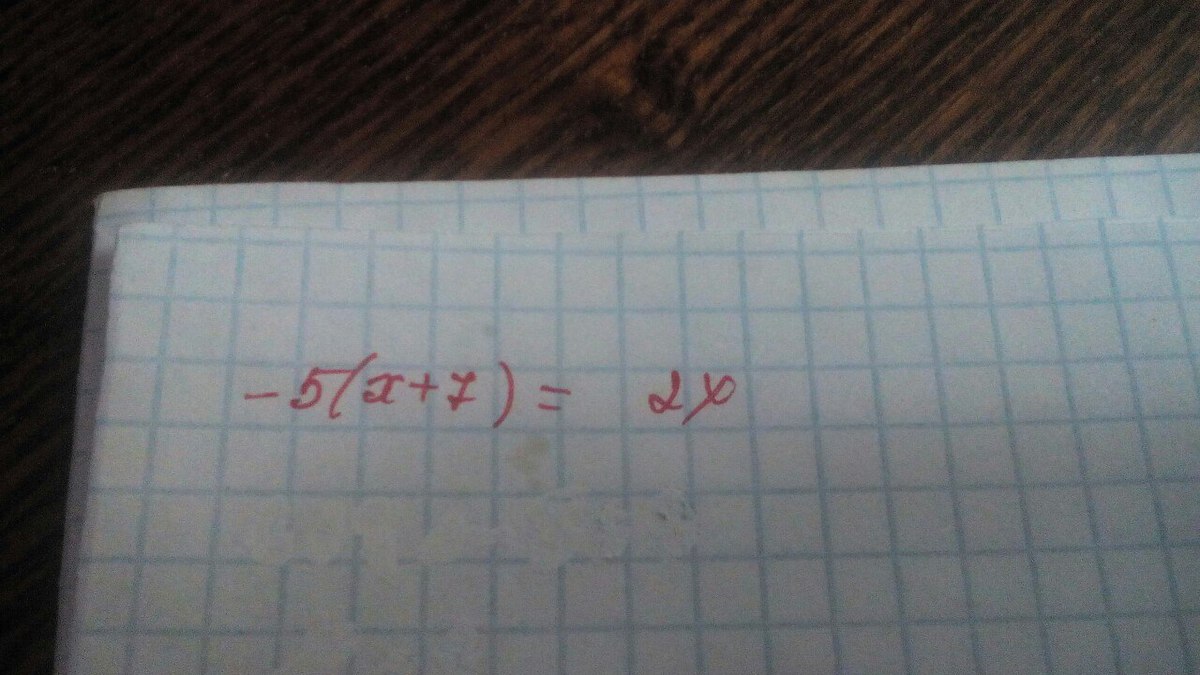 -5(x+7) = 2x